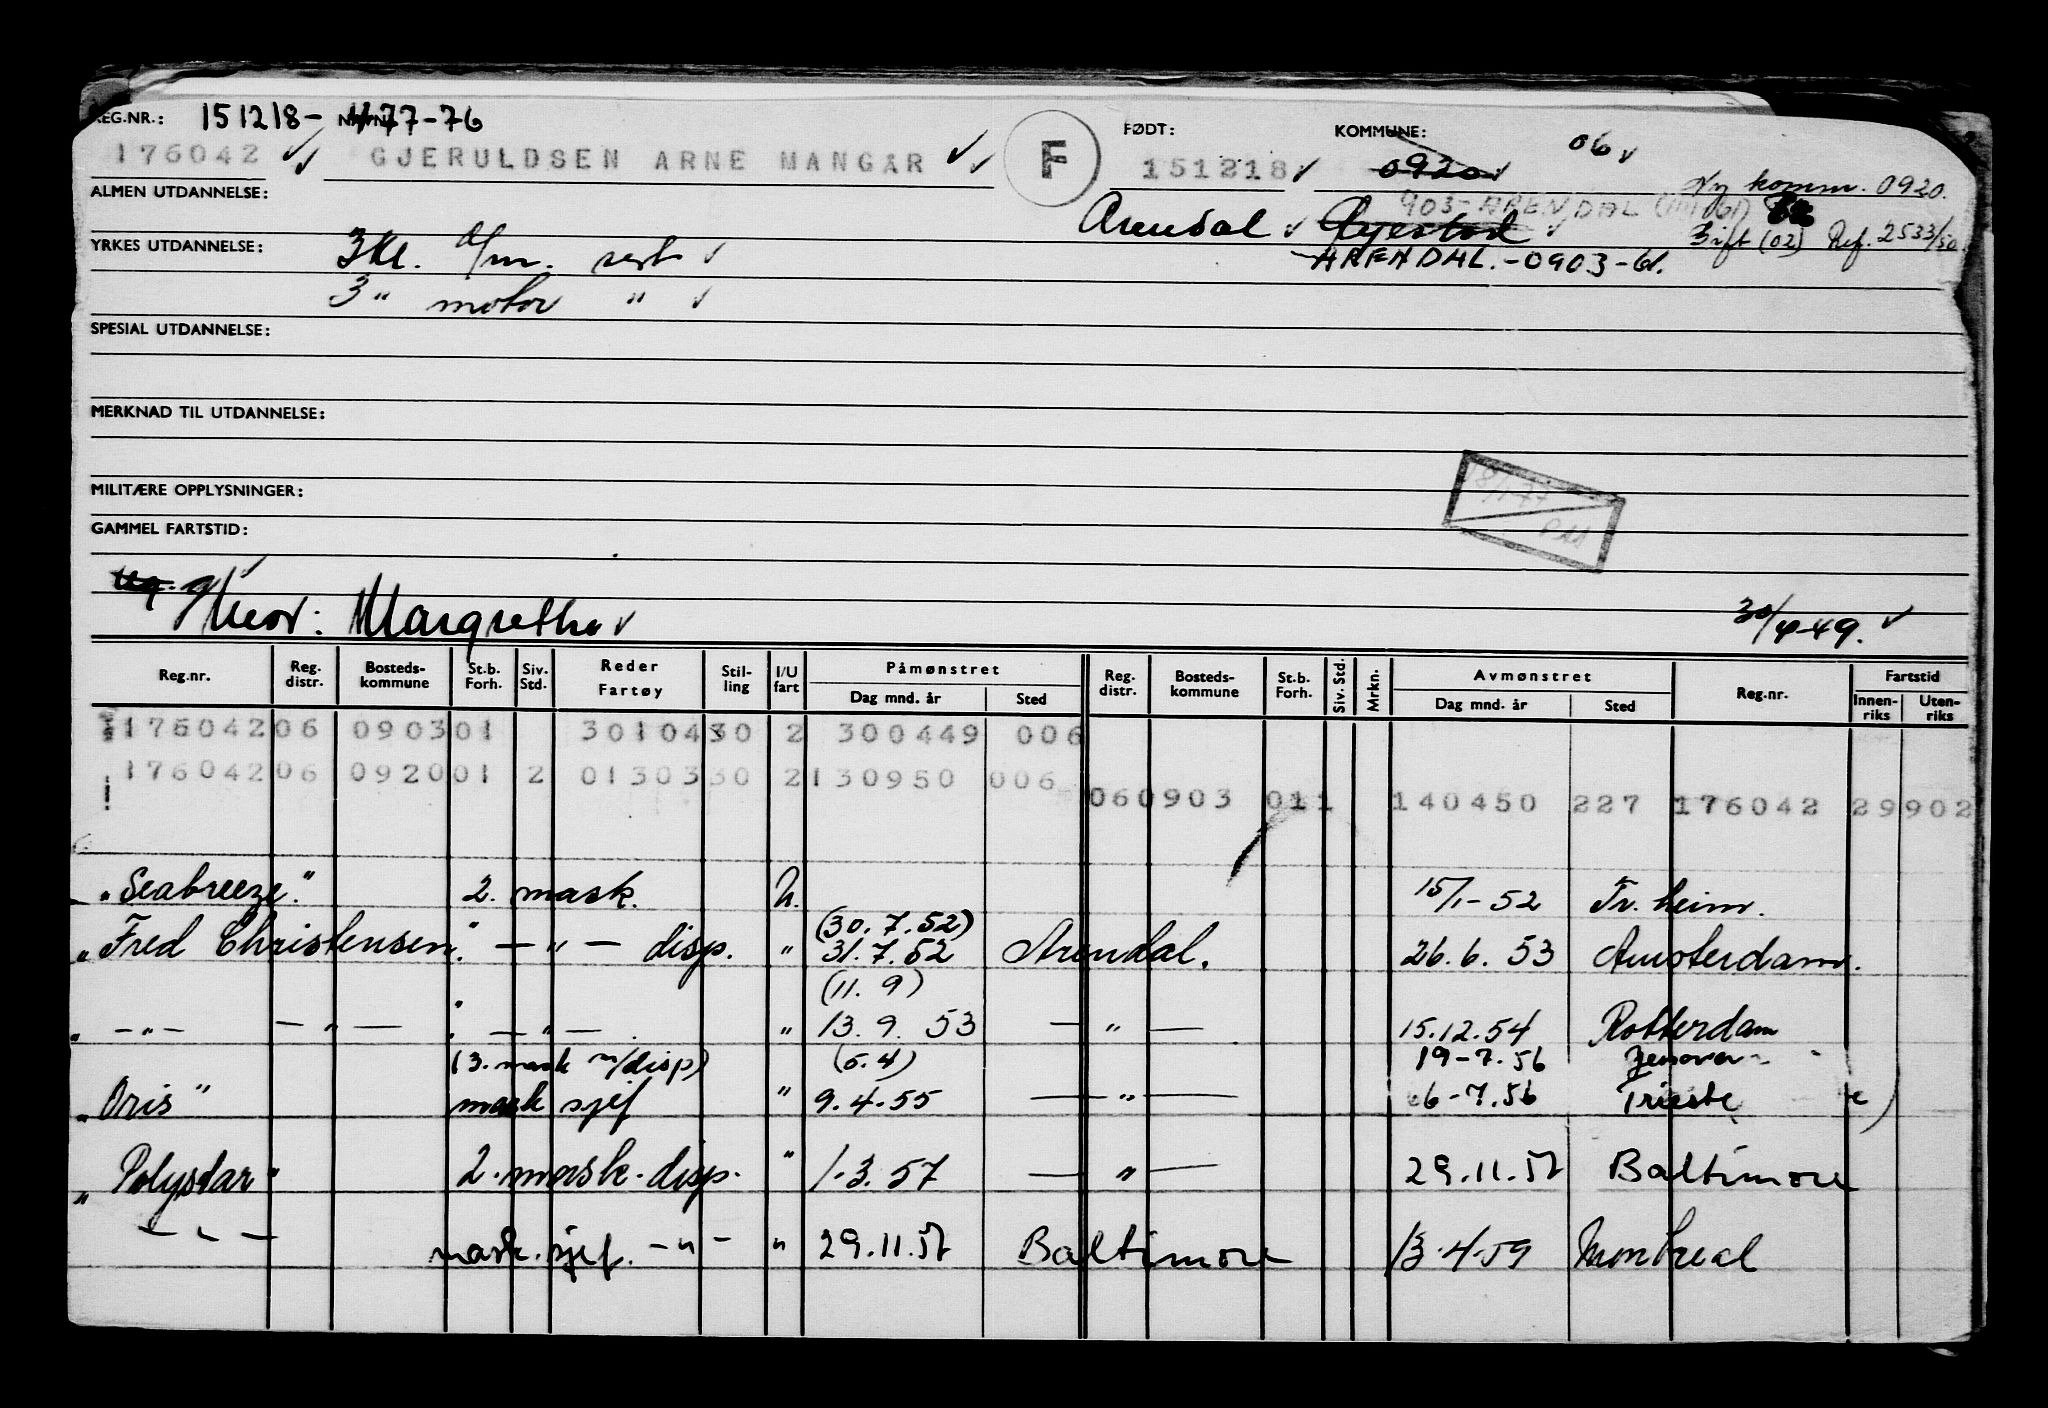 REG.NR.: 151218- 77-76 FØDT: KOMMUNE: 06
176042 GJERULDSEN ARNE MANGAR F 151218 0920 Ny komm. 0920.
ALMEN UTDANNELSE: 903-ARENDAL
Arendal Øyestad Gift (02) Ref. 2533/50
YRKES UTDANNELSE: 3 kl. d/m. sert ARENDAL.-0903-61.
3 " motor "
SPESIAL UTDANNELSE:
MERKNAD TIL UTDANNELSE:
MILITÆRE OPPLYSNINGER: 18/1-77
GAMMEL FARTSTID:
Mor: Margrethe 30/4-49.
Reg.nr. Reg. distr. Bosteds- kommune St.b. Forh. Siv. Std. Reder Fartøy Stil- ling I/U fart Påmønstret Dag mnd. år Sted Reg. distr. Bosteds- kommune St.b. Forh. Siv. Std. Mrkn. Avmønstret Dag mnd. år Sted Reg.nr. Fartstid Innen- riks Uten- riks
176042 06 0903 01 30104 30 2 300449 006
176042 06 0920 01 2 01303 30 2 130950 006
060903 011 140450 227 176042 29902
"Seabreeze" 2. mask. U. 15/1-52 Tr.heim.
(30.7.52)
"Fred Christensen" — " — disp. " 31.7.52 Arendal. 26.6.53 Amsterdam.
(11.9)
" — " — — " — " — " — " 13.9.53 — " — 15.12.54 Rotterdam
(3. mask m/disp) (5.4) 19-7.56 Genova
"Oris" mask sjef " 9.4.55 — " — 6-7.56 Trieste )
"Polystar" 2. mask. disp. " 1.3.57 — " — 29.11.57 Baltimore
— " — mask. sjef. — " — " 29.11.57 Baltimore 13.4.59 Montreal